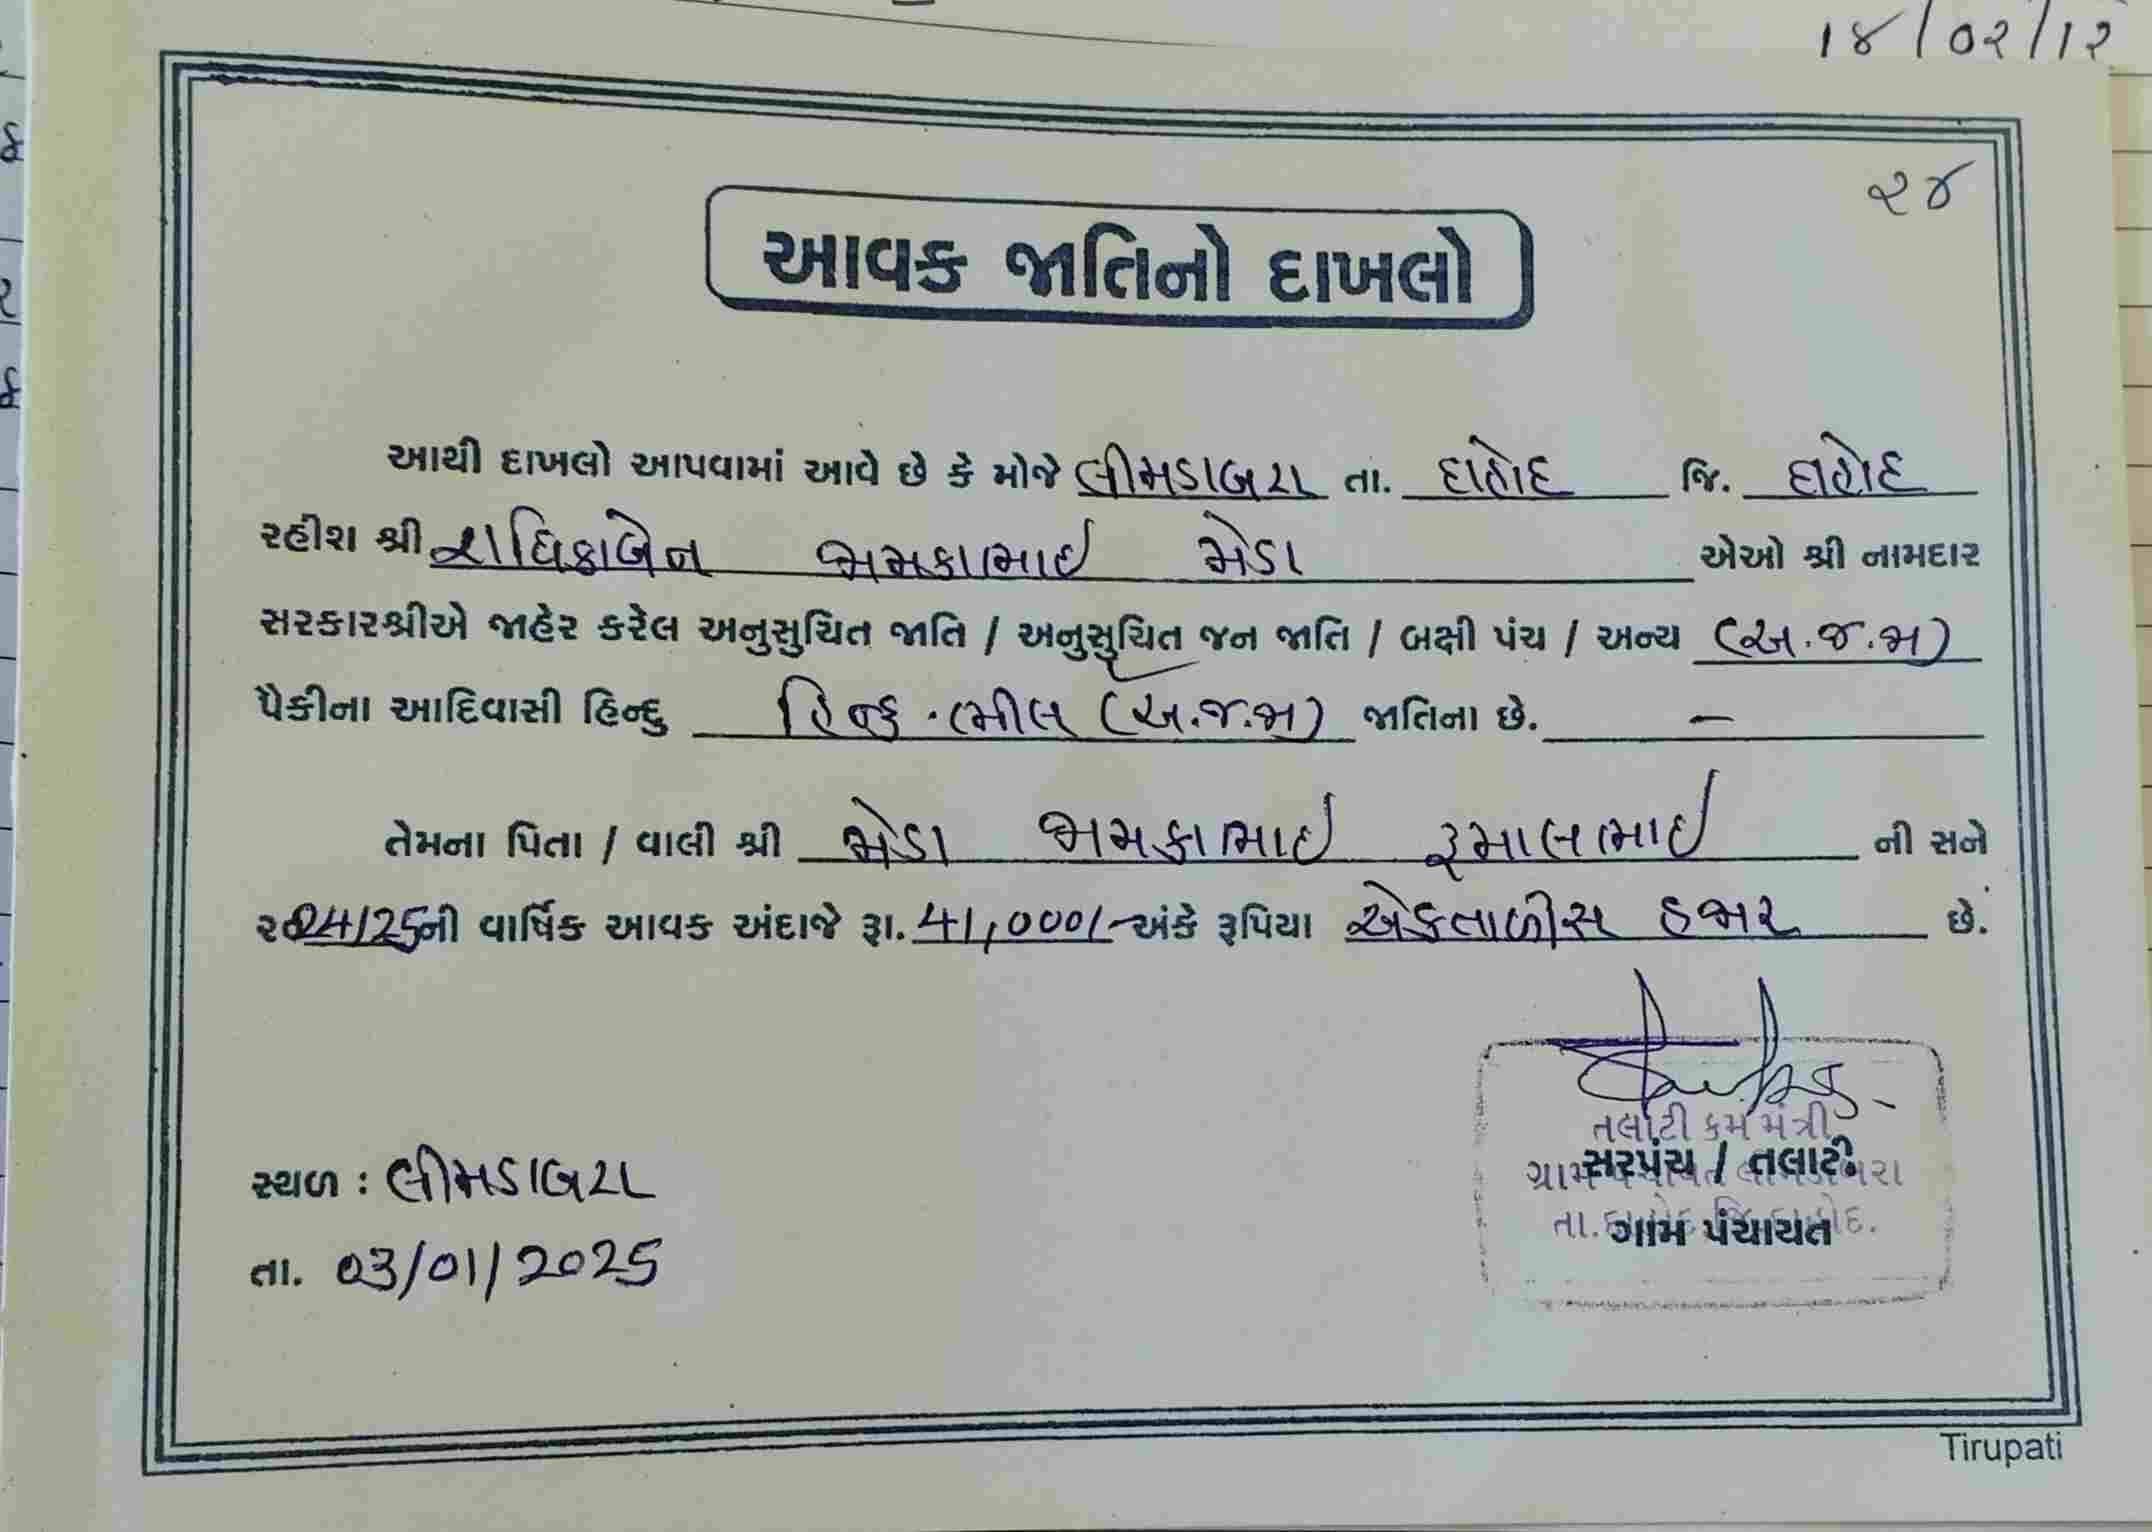 ૧૪/૦૨/૧૨
૨૪
આવક જાતિનો દાખલો
આથી દાખલો આપવામાં આવે છે કે મોજે લીમડાબરા તા. દાહોદ જિ. દાહોદ
રહીશ શ્રી રાધિકાબેન જામકાભાઇ મેડા એઓ શ્રી નામદાર
સરકારશ્રીએ જાહેર કરેલ અનુસુચિત જાતિ / અનુસુચિત જન જાતિ / બક્ષી પંચ / અન્ય (અ.જ.જા)
પૈકીના આદિવાસી હિન્દુ હિન્દુ. ભીલ (અ.જ.જા) જાતિના છે. —
તેમના પિતા / વાલી શ્રી મેડા જામકાભાઇ રૂમાલભાઇ ની સને
૨૦24/25ની વાર્ષિક આવક અંદાજે રૂા. 41,000/- અંકે રૂપિયા એકતાળીસ હજાર છે.
તલાટી કમ મંત્રી
સરપંચ / તલાટી
ગ્રામ પંચાયત
સ્થળ : લીમડાબરા
તા. 03/01/2025
Tirupati